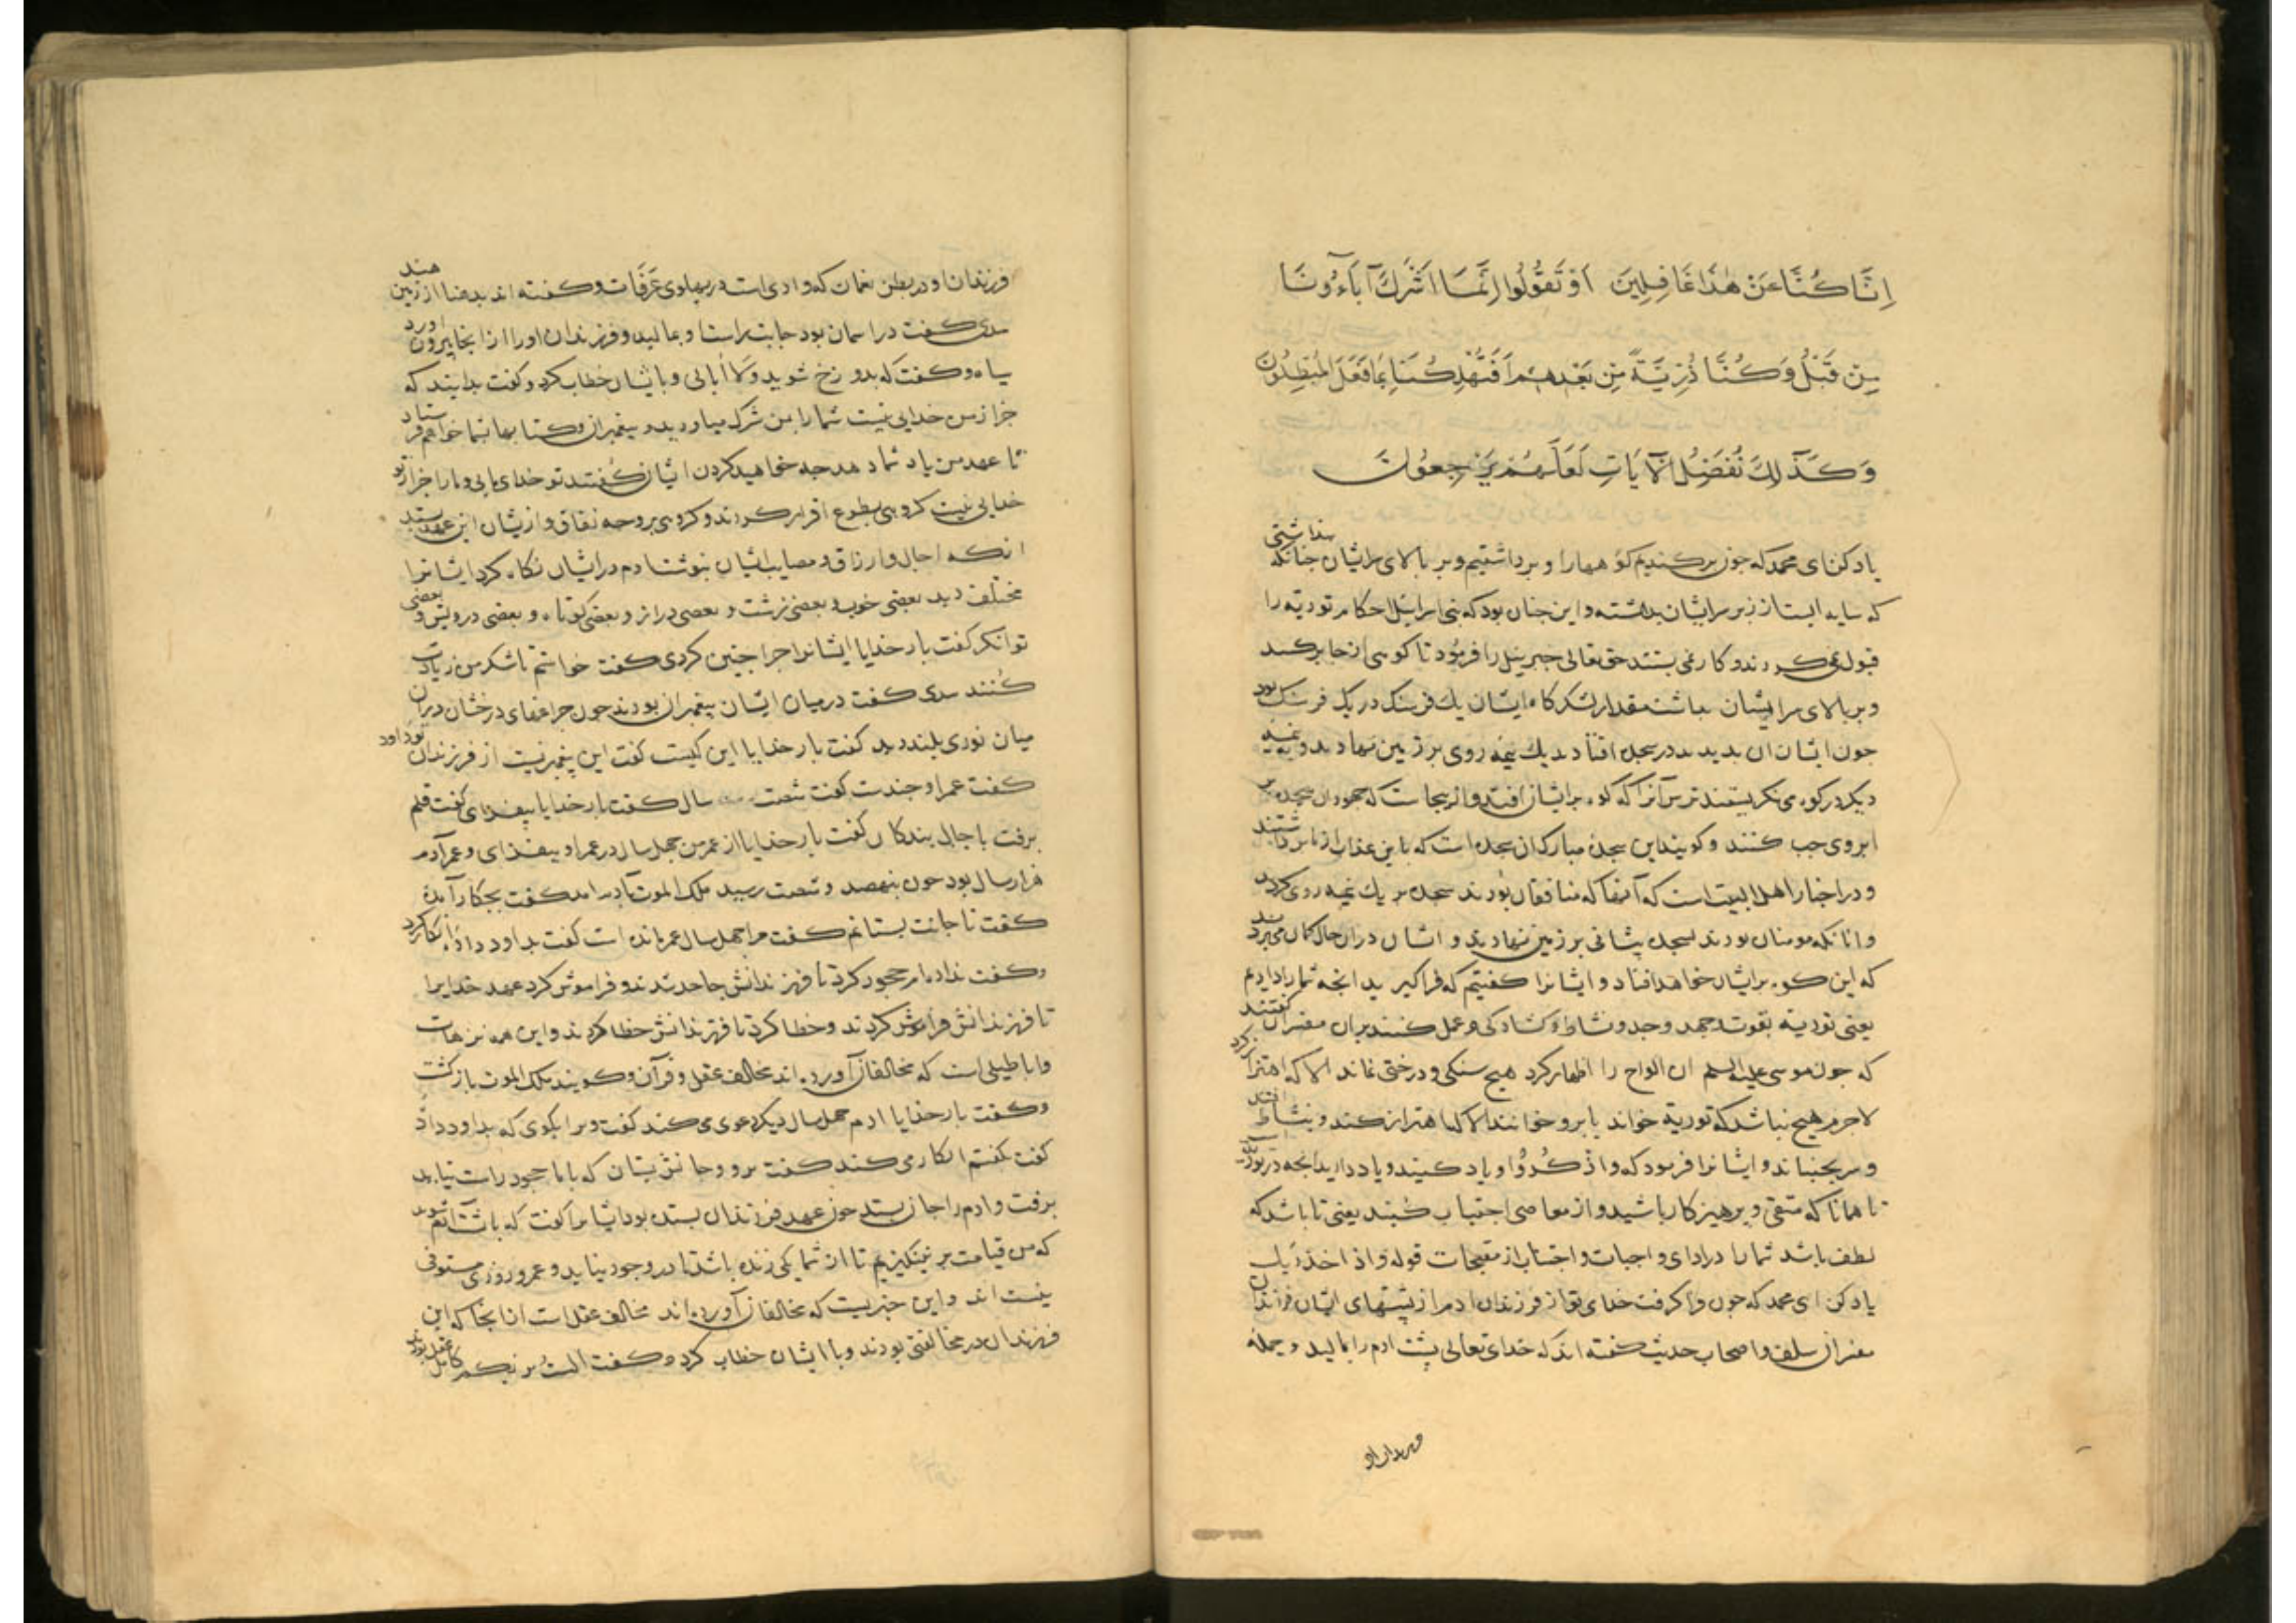 اِنَّا كُنَّا عَنْ هٰذَا غَافِلِينَ اَوْ تَقُولُوا اِنَّمَا اَشْرَكَ آبَآءُونَا
مِنْ قَبْلُ وَكُنَّا ذُرِّيَّةً مِنْ بَعْدِهِمْ اَفَتُهْلِكُنَا بِمَا فَعَلَ الْمُبْطِلُونَ
وَكَذٰلِكَ نُفَصِّلُ الْآيَاتِ لَعَلَّهُمْ يَرْجِعُونَ
یاد کن ای محمد که چون برکندیم کوهها را و برداشتیم و بر بالای سر ایشان چنانکه پنداشتی
که سایه ایست از زبر سر ایشان بداشته و این چنان بود که بنی اسرایل احکام توریة را
قبول نمی کردند و کار نمی بستند حق تعالی جبرییل را فرمود تا کوهی از جا برکند
و بر بالای سر ایشان بداشت مقدار لشکرگاه ایشان یك فرسنگ در یك فرسنگ بود
چون ایشان آن بدیدند در سجده افتادند یك نیمه روی بر زمین نهادند و به نیمه
دیگر در کوه می نگریستند ترس آنرا که کوه بر ایشان افتد و ازینجاست که جهودان سجده بر
ابروی چپ کنند و گویند این سجده مبارکه آن سجده است که باین عذاب از ما برداشتند
و در اخبار اهل البیت است که آنها که منافقان بودند سجده بر یك نیمه روی کردند
و آنانکه مومنان بودند بسجده پیشانی بر زمین نهادند و ایشان در آن حال گمان می بردند
که این کوه بر ایشان خواهد افتاد و ایشانرا گفتیم که فرا گیرید آنچه شما را دادیم
یعنی توریة بقوت و جهد و جد و نشاط و گشادگی و عمل کنند بران مفسران گفتند
که چون موسی علیه السلم ان الواح را اظهار کرد هیچ سنگی و درختی نماند الا که اهتزاز کرد
لاجرم هیچ نباشد که توریة خواند یا برو خوانند الا که اهتزاز کند و بنشاط افتد
و سر بجنباند و ایشانرا فرمود که واذْكُرُوا و یاد کنید و یاد دارید آنچه در
تا همانا که متقی و پرهیزکار باشید و از معاصی اجتناب کنید یعنی تا باشد که
لطف باشد شما را در ادای واجبات و اجتناب از مقبحات قوله و اذ اخذ ربك
یاد کن ای محمد که چون وا گرفت خدای تو از فرزندان ادم از پشتهای ایشان فرزندان
مفسران سلف و اصحاب حدیث گفته اند که خدای تعالی پشت ادم را بمالید و جمله
فرزندان او در بطن نعمان که وادی است در پهلوی عرفات و گفته اند بدهنا از زمین هند
سدی گفت در اسمان بود جانب راست او بمالید و فرزندان او را از انجا بیرون اورد
سیاه و گفت که بدوزخ شوید وَلَا اُبالی و با ایشان خطاب کرد و گفت بدانید که
جز از من خدایی نیست شما را بمن شرک میاورید و پیغمبران و کتابها بشما خواهم فرستاد
تا عهد من یاد شما دهند چه خواهید کردن ایشان گفتند تو خدای مایی و ما را جز از تو
خدایی نیست گروهی بطوع اقرار کردند و گروهی بر وجه نفاق و از ایشان این عهد بستد
انکه اجال و ارزاق و مصایب ایشان بنوشت ادم در ایشان نگاه کرد ایشانرا
مختلف دید بعضی خوب و بعضی زشت و بعضی دراز و بعضی کوتاه و بعضی درویش و بعضی
توانگر گفت بار خدایا ایشانرا چرا چنین کردی گفت خواستم تا شکر من زیادت
کنند سدی گفت در میان ایشان پیغمبران بودند چون چراغهای درخشان در ان
میان نوری بلند دید گفت بار خدایا این کیست گفت این پیغمبریست از فرزندان تو داود
گفت عمر او چندست گفت شصت سال گفت بار خدایا بیفزای گفت قلم
برفت باجال بندگان گفت بار خدایا از عمر من چهل سال در عمر او بیفزای و عمر آدم
هزار سال بود چون بنهصد و شصت رسید ملک الموت بادم امد گفت بچکار آمدهٔ
گفت تا جانت بستانم گفت مرا چهل سال عمر مانده است گفت بداود دادهٔ انکار کرد
و گفت نداده ام جحود کرد تا فرزندانش جاحد شدند و فراموش کرد عهد خدایرا
تا فرزندانش فراموش کردند و خطا کرد تا فرزندانش خطا کردند و این همه ترهات
و اباطیلی است که مخالفان آورده اند مخالف عقل و قرآن و گویند ملک الموت بازگشت
و گفت بار خدایا ادم چهل سال دیگر دعوی می کند گفت ویرا بگوی که بداود داد
گفت گفتم انکار می کند گفت برو و جانش بستان که با ما جحود راست نیاید
برفت و ادم را جان بستد چون عهد فرزندان بستده بود ایشانرا گفت که با پشت آدم شوید
که من قیامت بر نینگیزم تا از شما یکی زنده باشد تا در وجود نیاید و عمر و روزی مستوفی
بنستاند و این خبریست که مخالفان آورده اند مخالف عقل است از انجا که این
فرزندان در مخالفتی بودند و با ایشان خطاب کرد و گفت الستُ بربكم کامل عقل بودند